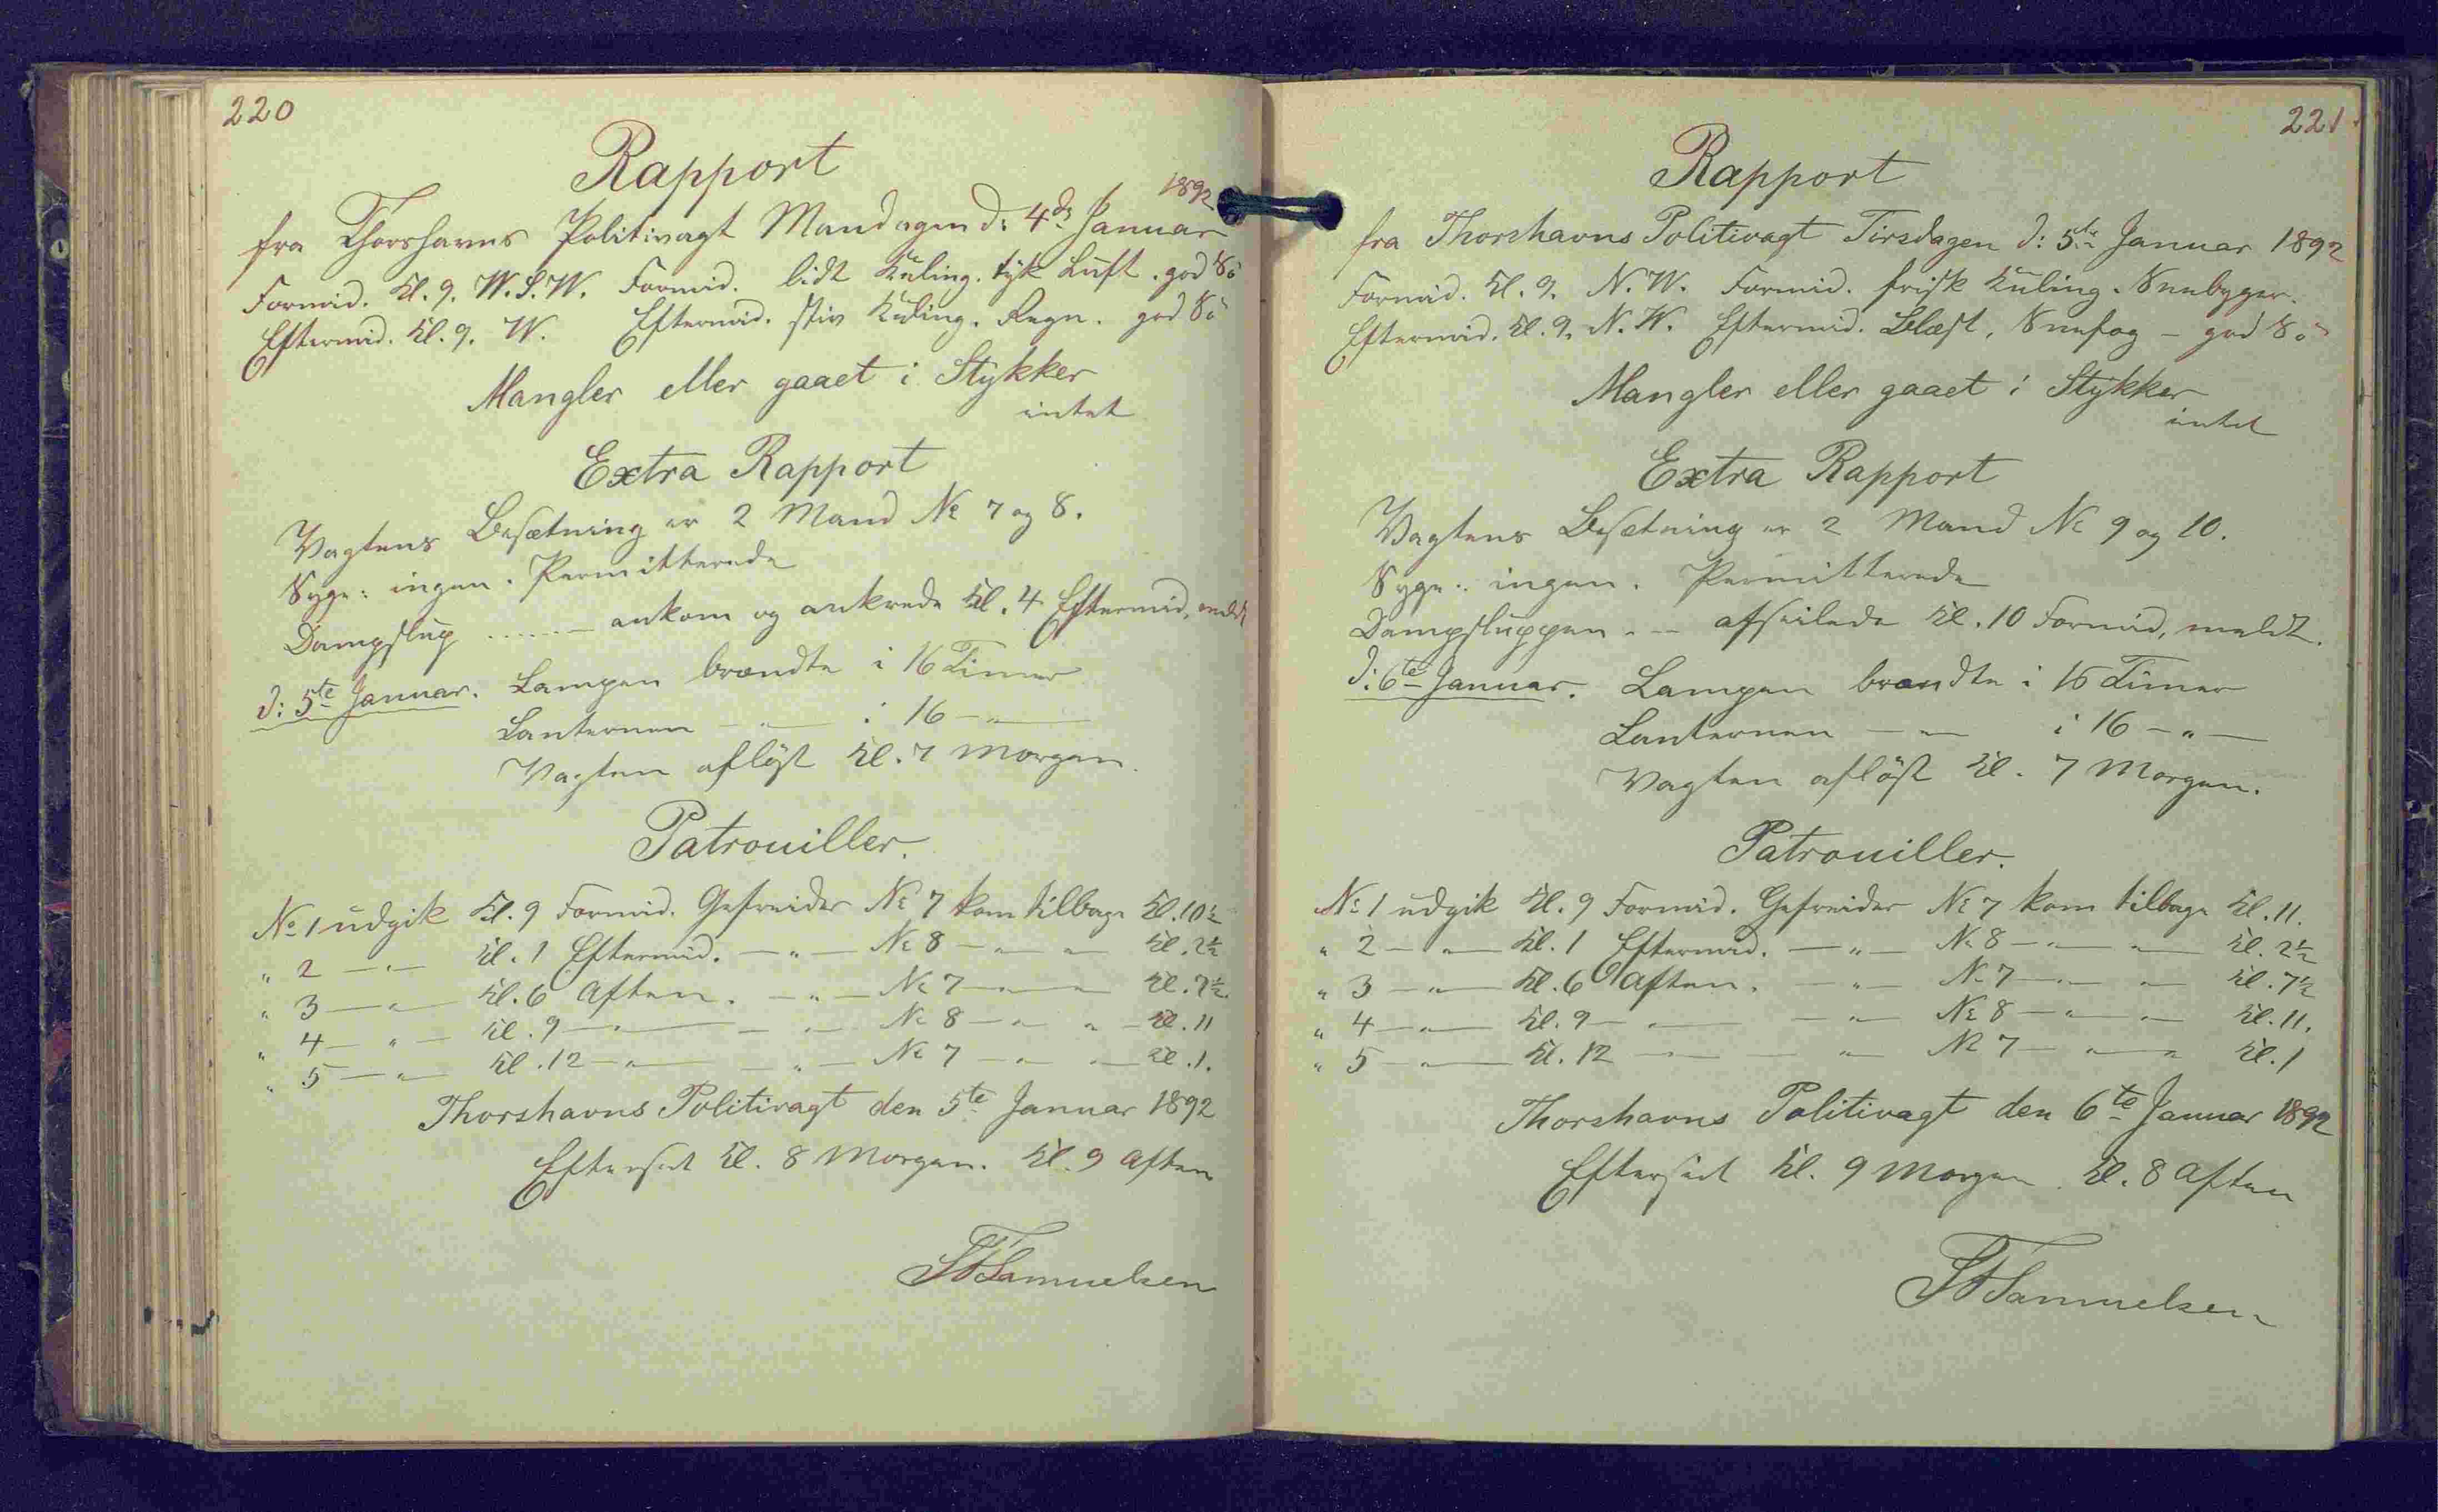 220
Rapport
fra Thorshavns Politivagt Mandagen d: 4de Januar 1892
Formid. Kl. 9. W.S.W. Formid. lidt Kuling. tyk Luft. god Sö
Eftermid. Kl. 9. W. Eftermid. stiv Kuling. Regn. god Sö
Mangler eller gaaet i Stykker
intet
Extra Rapport
Vagtens Besætning er 2 Mand No 7 og 8.
Syge: ingen. Permitterede
Dampslup ...... ankom og ankrede Kl. 4 Eftermid, meldt
d: 5te Januar. Lampen brændte i 16 Timer
Lanternen — " — i 16 — " —
Vagten aflöst Kl. 7 Morgen.
Patrouiller.
No 1 udgik Kl. 9 Formid. Gefreider No 7 kom tilbage Kl. 10½
" 2 — " — Kl. 1 Eftermid. — " — No 8 — " — " — Kl. 2½
" 3 — " — Kl. 6 Aften. — " — No 7 — " — " — Kl. 7½.
" 4 — " — Kl. 9 — " — — " — No 8 — " — " — Kl. 11
" 5 — " — Kl. 12 — " — — " — No 7 — " — " — Kl. 1.
Thorshavns Politivagt den 5te Januar 1892
Efterset Kl. 8 Morgen. Kl. 9 Aften
Samuelsen
221.
Rapport
fra Thorshavns Politivagt Tirsdagen d: 5te Januar 1892
Formid. Kl. 9. N.W. Formid. frisk Kuling. Sneebyger.
Eftermid. Kl. 9. N.W. Eftermid. Blæst, Sneefog — god Sö
Mangler eller gaaet i Stykker
intet
Extra Rapport
Vagtens Besætning er 2 Mand No 9 og 10.
Syge: ingen. Permitterede
Dampsluppen . — afseilede Kl. 10 Formid, meldt.
d: 6te Januar. Lampen brændte i 16 Timer
Lanternen — " — i 16 — " —
Vagten aflöst Kl. 7 Morgen.
Patrouiller.
No 1 udgik Kl. 9 Formid. Gefreider No 7 kom tilbage Kl. 11.
" 2 — " — Kl. 1 Eftermid. — " — No 8 — " — " — Kl. 2½
" 3 — " — Kl. 6 Aften. — " — No 7 — " — " — Kl. 7½
" 4 — " — Kl. 9 — " — — " — No 8 — " — " — Kl. 11.
" 5 — " — Kl. 12 — " — — " — No 7 — " — " Kl. 1
Thorshavns Politivagt den 6te Januar 1892
Efterset Kl. 9 Morgen. Kl. 8 Aften
Samuelsen